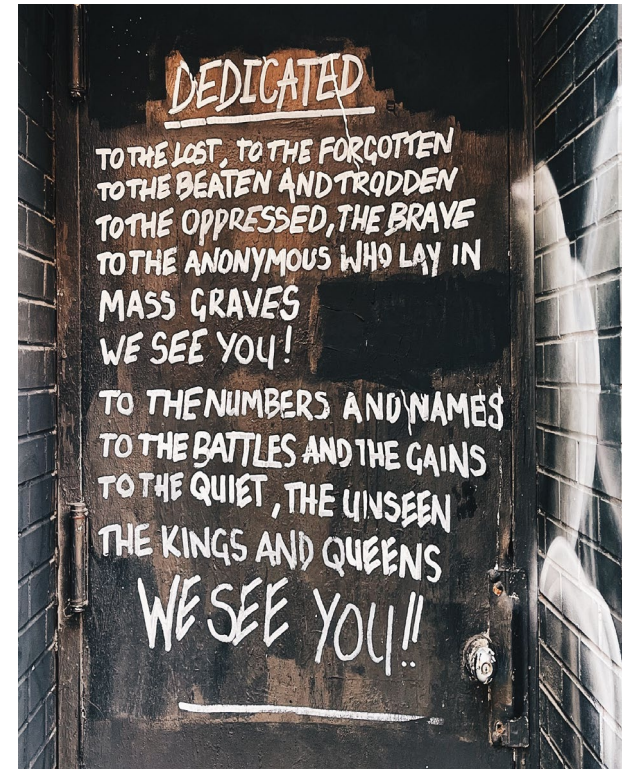 DEDICATED
TO THE LOST, TO THE FORGOTTEN
TO THE BEATEN AND TRODDEN
TO THE OPPRESSED, THE BRAVE
TO THE ANONYMOUS WHO LAY IN
MASS GRAVES
WE SEE YOU!
TO THE NUMBERS AND NAMES
TO THE BATTLES AND THE GAINS
TO THE QUIET, THE UNSEEN
THE KINGS AND QUEENS
WE SEE YOU!!